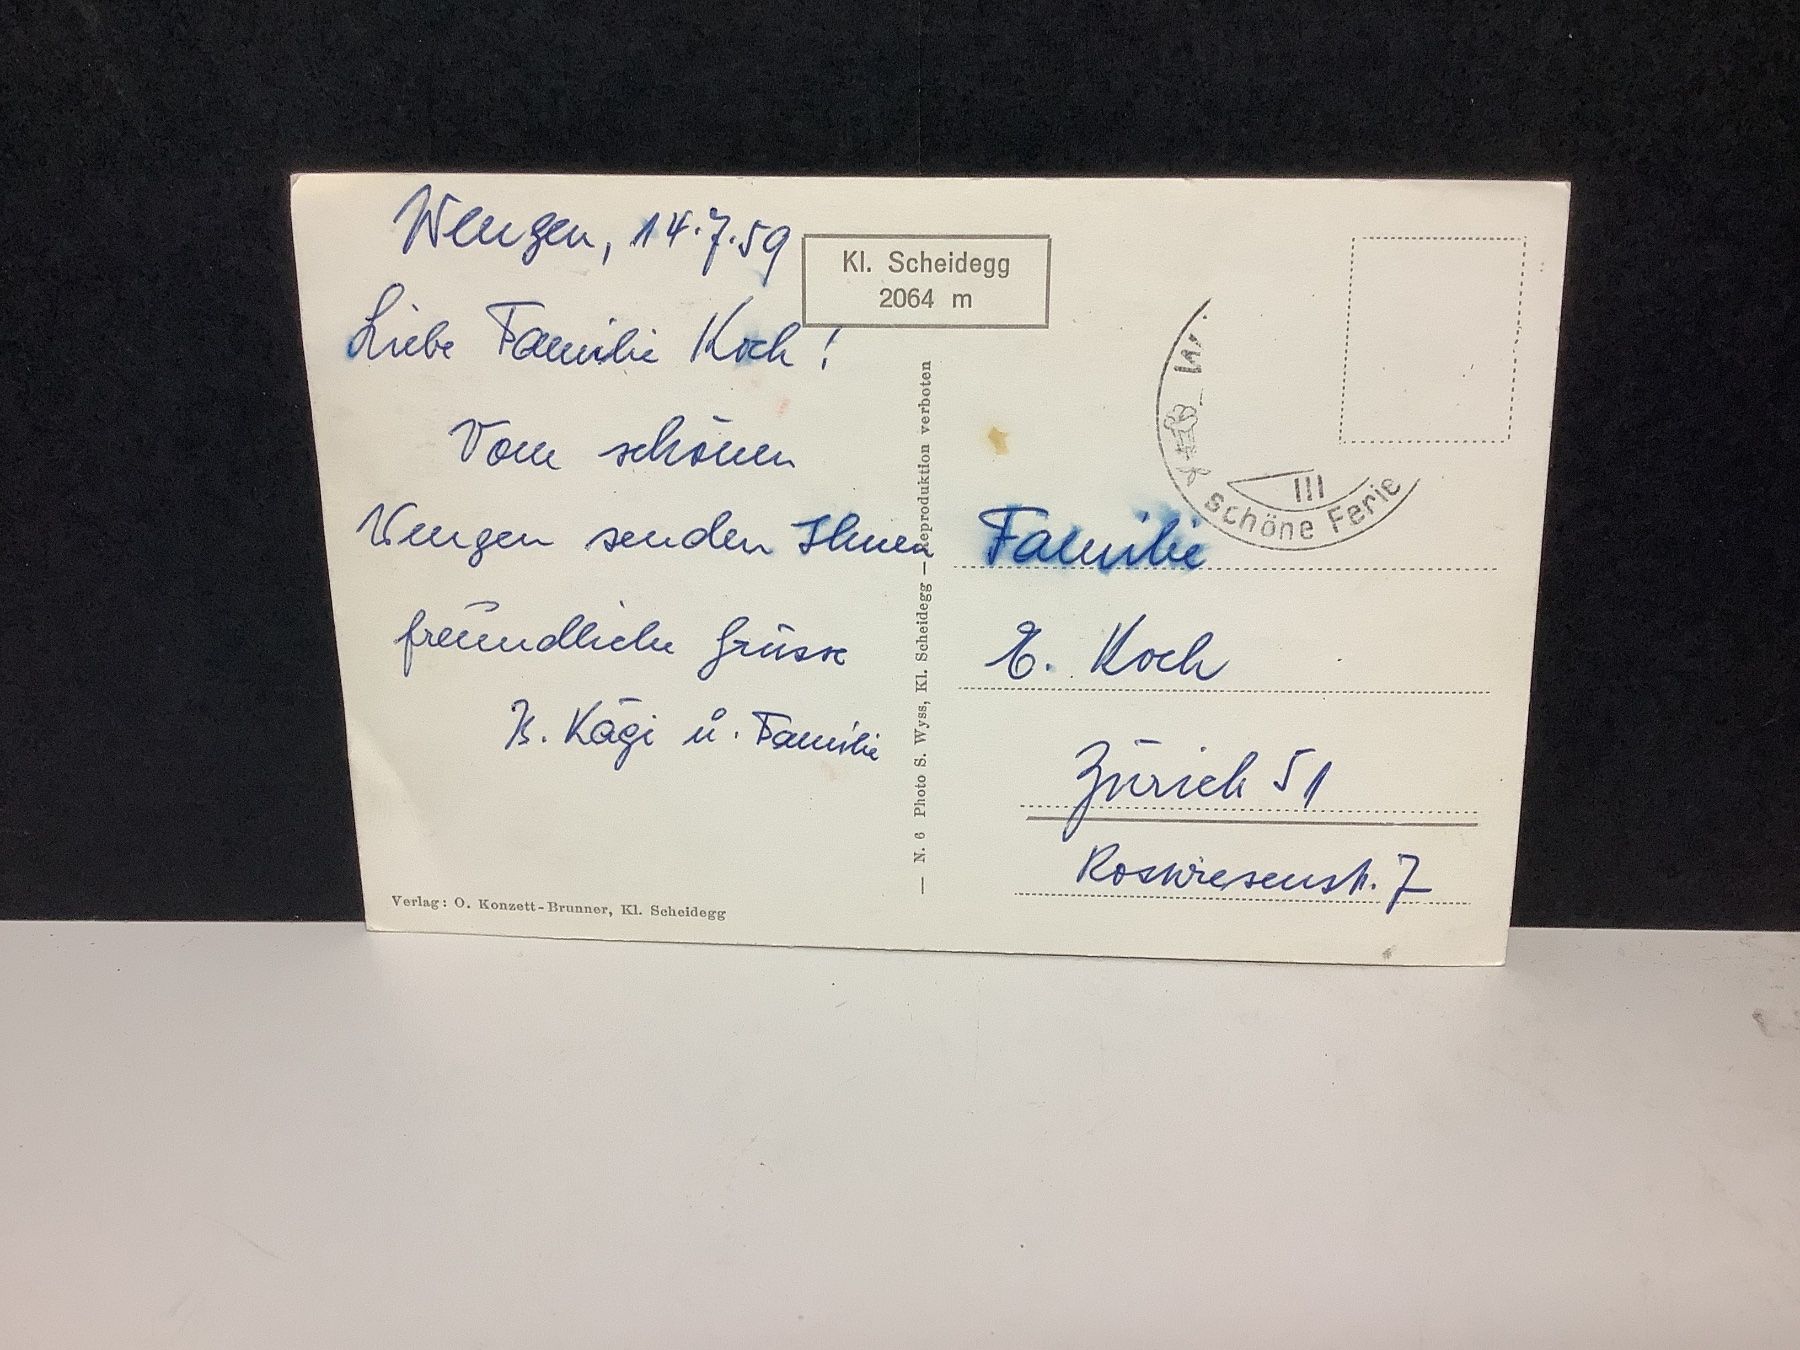 Wengen, 14.7.59
Liebe Familie Koch!
Vom schönen
Wengen senden Ihnen
freundliche Grüsse
Kägi u. Familie
Verlag: O. Konzett-Brunner, Kl. Scheidegg
Kl. Scheidegg
2064 m
— N. 6 Photo S. Wyss, Kl. Scheidegg — Reproduktion verboten
III
Schöne Ferie
Familie
E. Koch
Zürich 51
Roswiesenstr. 7